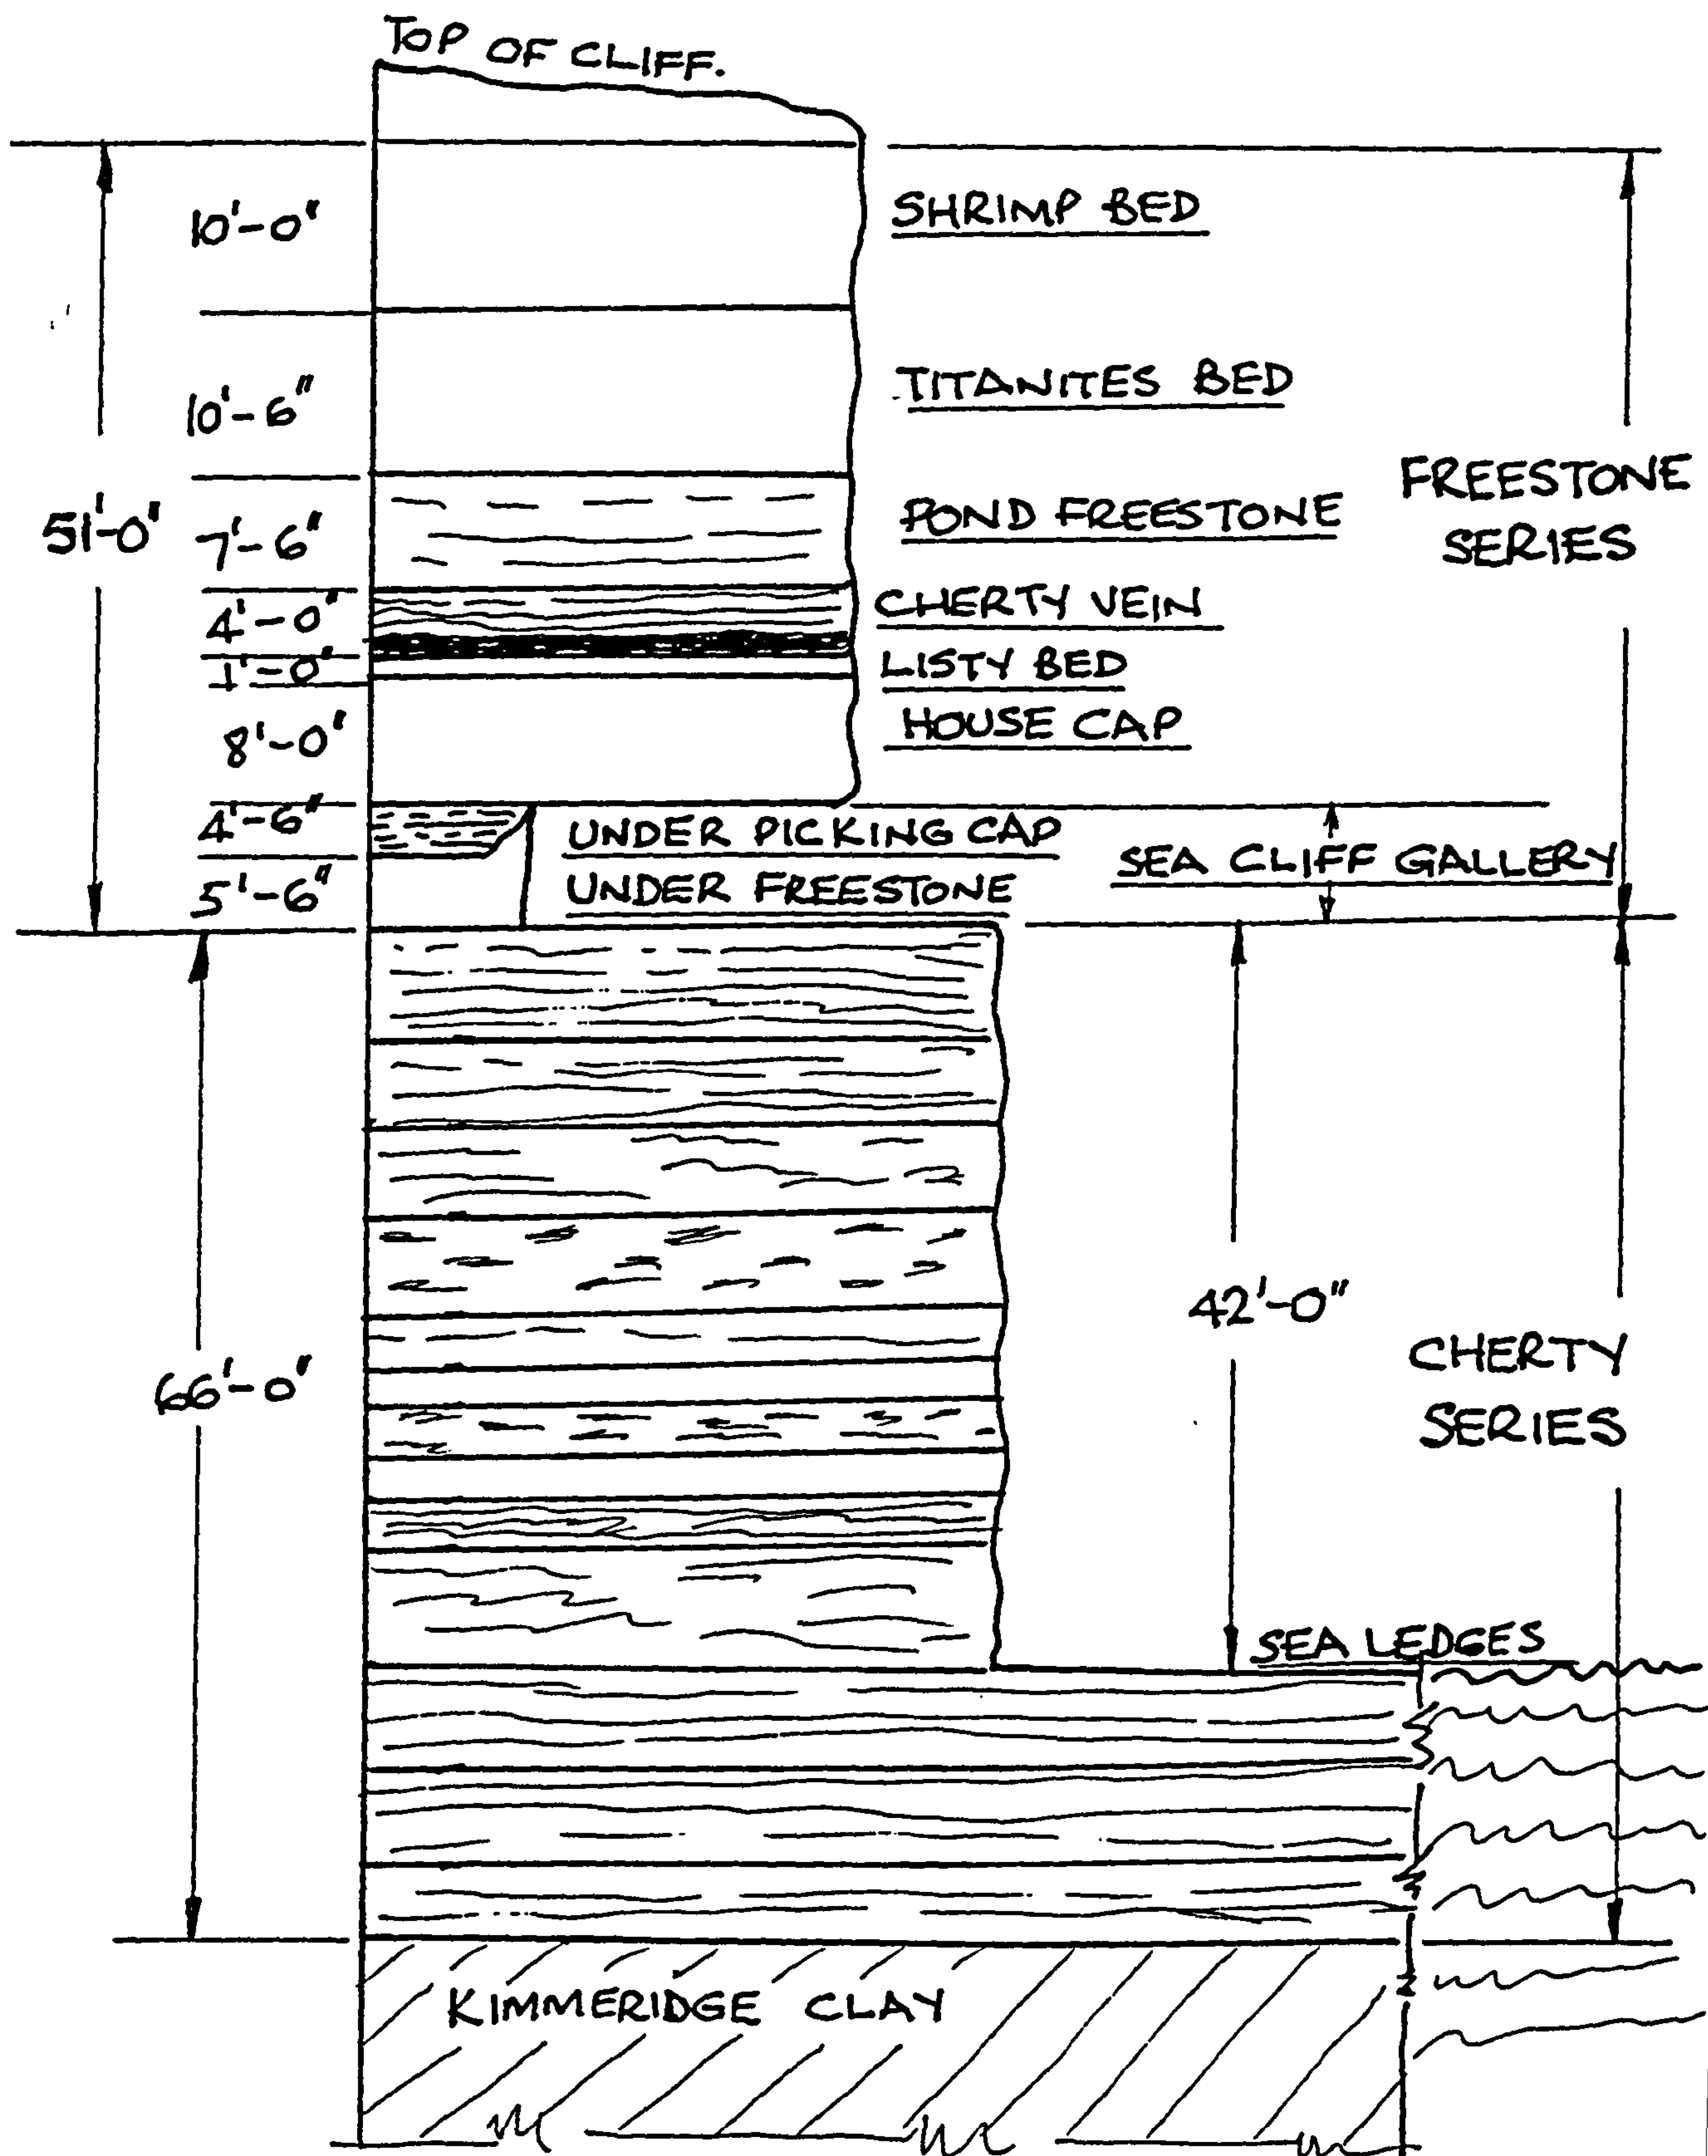 TOP OF CLIFF.
10'-0"
SHRIMP BED
10'-6"
TITANITES BED
51'-0"
7'-6"
POND FREESTONE
FREESTONE
SERIES
4'-0"
CHERTY VEIN
1'-0"
LISTY BED
8'-0"
HOUSE CAP
4'-6"
UNDER PICKING CAP
SEA CLIFF GALLERY
5'-6"
UNDER FREESTONE
42'-0"
66'-0"
CHERTY
SERIES
SEA LEDGES
KIMMERIDGE CLAY